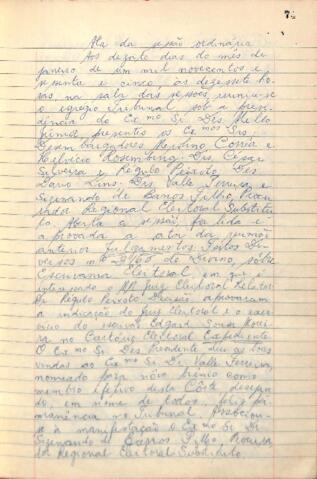 7
Ata da sessão ordinária
Aos dezoito dias do mês de
janeiro de um mil novecentos e
sessenta e cinco às dezessete ho-
ras, na sala das sessões, reuniu-se
o egrégio Tribunal sob a presi-
dência do Exmo Sr. Des. Mello
presentes os Exmos Srs.
Desembargadores Correia e
Helvécio Rosenburg, Drs. Cesar
Silveira e Régulo Peixoto, Des
Dario Lins, Drs. Valle Ferreira e
Sizenando de Barros Filho, Procu-
rador Regional Eleitoral Substitu-
to. Aberta a sessão, foi lida e
aprovada a ata da reunião
anterior. Julgamentos. Feitos Di-
versos nº de sobre
Escrivania Eleitoral, em que é
interessado o MM. Juiz Eleitoral. Relator
Dr. Régulo Peixoto. Decisão: aprovaram
a indicação do Juiz Eleitoral e o exer-
cício do escrivão Edgard Souza
ra no Cartório Eleitoral. Expediente.
O Exmo Sr. Des. Presidente deu as boas
vindas ao Exmo Sr. Dr. Valle Ferreira,
nomeado para novo biênio como
membro efetivo desta Côrte, desejan-
do, em nome de todos, feliz per-
manência no Tribunal. Associou-
se à manifestação o Exmo Sr. Dr.
Sizenando de Barros Filho, Procura-
dor Regional Eleitoral Substituto.